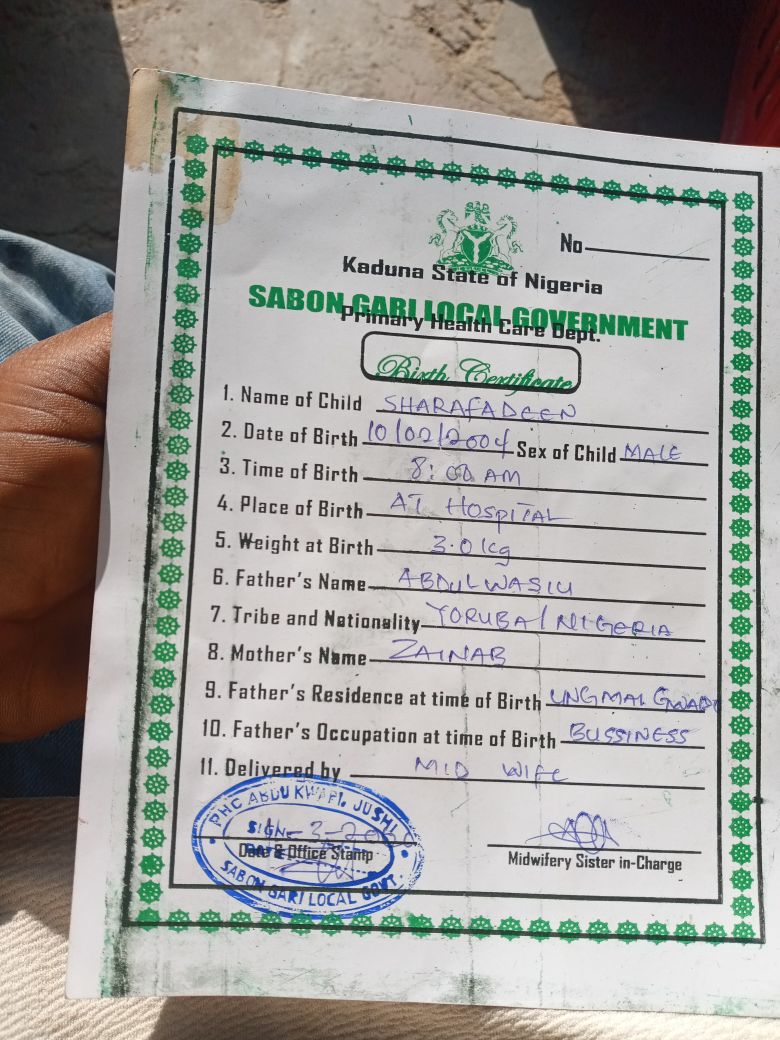 No
Kaduna State of Nigeria
SABON GARI LOCAL GOVERNMENT
Primary Health Care Dept.
Birth Certificate
1. Name of Child SHARAFADEEN
2. Date of Birth 10/02/2004 Sex of Child MALE
3. Time of Birth 8:00 AM
4. Place of Birth AT HOSPITAL
5. Weight at Birth 3.0kg
6. Father's Name ABDULWASIU
7. Tribe and Nationality YORUBA / NIGERIA
8. Mother's Name ZAINAB
9. Father's Residence at time of Birth UNGMAI GWADO
10. Father's Occupation at time of Birth BUSSINESS
11. Delivered by MID WIFE
PHC ABDU KWARI, JUSHI
SIGN
DATE
Date & Office Stamp
SABON GARI LOCAL GOVT.
Midwifery Sister in-Charge